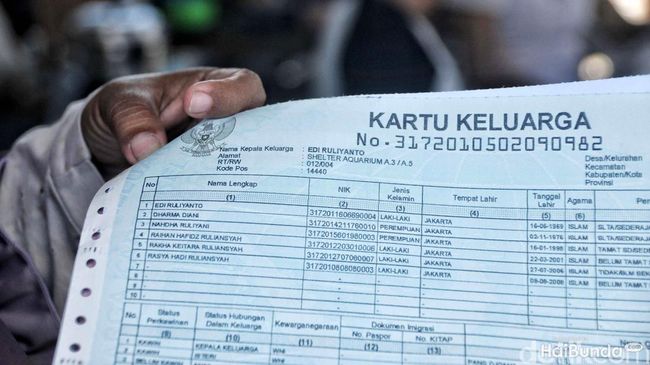 KARTU KELUARGA
No. 3172010502090982
Nama Kepala Keluarga : EDI RULIYANTO
Alamat : SHELTER AQUARIUM A.3 / A.5
RT/RW : 012/004
Kode Pos : 14440
Desa/Kelurahan
Kecamatan
Kabupaten/Kota
Provinsi
No Nama Lengkap NIK Jenis Kelamin Tempat Lahir Tanggal Lahir Agama
(1) (2) (3) (4) (5) (6)
1 EDI RULIYANTO 3172011606690004 LAKI-LAKI JAKARTA 16-06-1969 ISLAM SLTA/SEDERAJA
2 DHARMA DIANI 3172014211760010 PEREMPUAN JAKARTA 03-11-1976 ISLAM SLTA/SEDERAJ
3 NAHDHA RULIYANI 3172015601980003 PEREMPUAN JAKARTA 16-01-1998 ISLAM TAMAT SD/SEDE
4 RAIHAN HAFIDZ RULIANSYAH 3172012203010006 LAKI-LAKI JAKARTA 22-03-2001 ISLAM BELUM TAMAT
5 RAKHA KEITARA RULIANSYAH 3172012707060007 LAKI-LAKI JAKARTA 27-07-2006 ISLAM TIDAK/BLM
6 RASYA HADI RULIANSYAH 3172010808080003 LAKI-LAKI JAKARTA ISLAM BELUM TAMAT
7
8
9
10
No Status Perkawinan Status Hubungan Dalam Keluarga Kewarganegaraan Dokumen Imigrasi
No. Paspor No. KITAP
(9) (10) (11) (12) (13)
1 KAWIN KEPALA KELUARGA WNI
KAWIN ISTERI WNI
HaiBunda